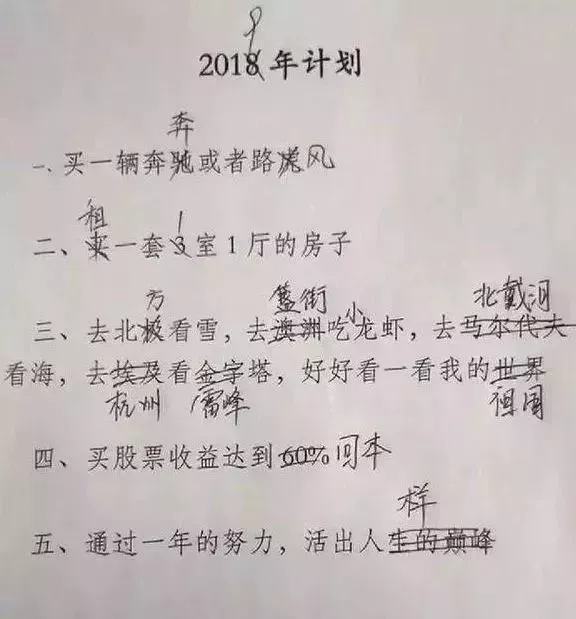 9
2018年计划
奔
一、买一辆奔驰或者路虎风
租 1
二、买一套3室1厅的房子
方 簋街 小 北戴河
三、去北极看雪，去澳洲吃龙虾，去马尔代夫
看海，去埃及看金字塔，好好看一看我的世界
杭州 雷峰 祖国
四、买股票收益达到60%回本
样
五、通过一年的努力，活出人生的巅峰